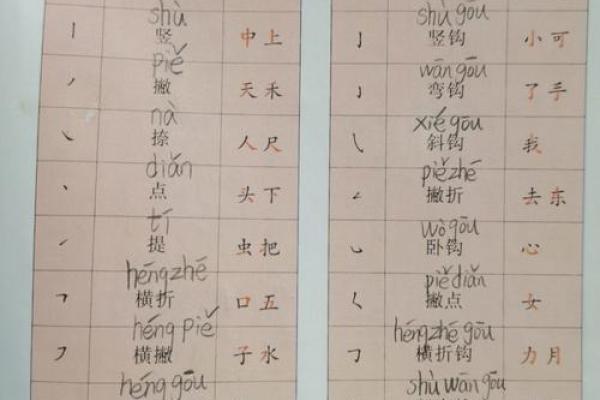 shù
丨 竖 中 上
piě
丿 撇 天 禾
nà
㇏ 捺 人 尺
diǎn
丶 点 头 下
tí
㇀ 提 虫 把
héngzhé
𠃍 横折 口 五
héng piě
㇇ 横撇 子 水
héng gōu
shù gōu
亅 竖钩 小 可
wān gōu
㇁ 弯钩 了 手
xié gōu
㇂ 斜钩 我
piězhé
𠃋 撇折 去 东
wò gōu
㇃ 卧钩 心
piě diǎn
𡿨 撇点 女
héngzhé gōu
𠃌 横折钩 力 月
shù wān gōu